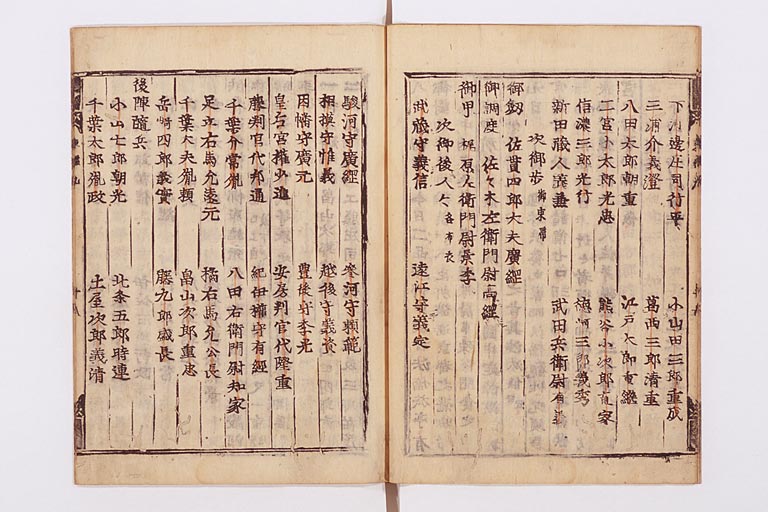 下河邊庄司行平 小山田三郎重成
三浦介義澄 葛西三郎清重
八田太郎朝重 江戸太郎重継
二宮小太郎光忠 熊谷小次郎直家
信濃三郎光行 徳河三郎義秀
新田蔵人義兼 武田兵衛尉有義
次御歩 御束帯
御劔 佐貫四郎大夫廣經
御調度 佐々木左衛門尉高經
御甲 梶原左衛門尉景季
次御後人々 各布衣
武蔵守義信 遠江守義定
駿河守廣經 參河守頼範
相模守惟義 越後守義資
因幡守廣元 豊後守季光
皇后宮權少進 安房判官代隆重
藤判官代邦通 紀伊權守有經
千葉介常胤 八田右衛門尉知家
足立右馬允遠元 橘右馬允公長
千葉大夫胤頼 畠山次郎重忠
岳崎四郎義實 藤九郎盛長
後陣隨兵
小山七郎朝光 北条五郎時連
千葉太郎胤政 土屋次郎義清